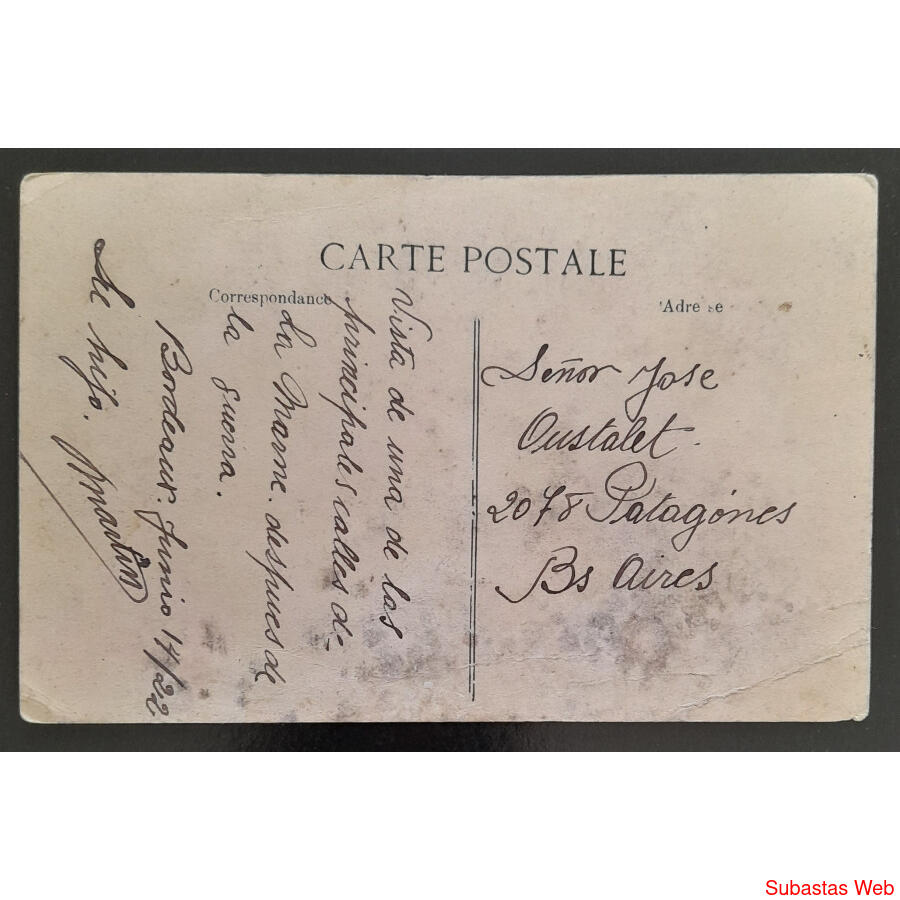 CARTE POSTALE
Correspondance
Adre se
Vista de una de las
principales calles de
La Marne. despues de
la guerra.
Bordeaux. Junio 14/22
Su hijo. Martin
Señor Jose
Oustalet.
2078 Patagónes
Bs Aires
Subastas Web